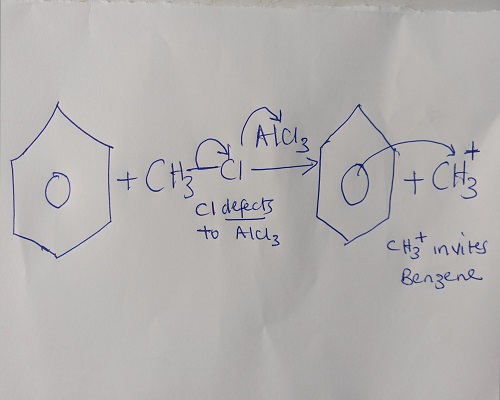 AlCl₃
+ CH₃—Cl ⟶ + CH₃⁺
Cl defects
to AlCl₃
CH₃⁺ invites
Benzene